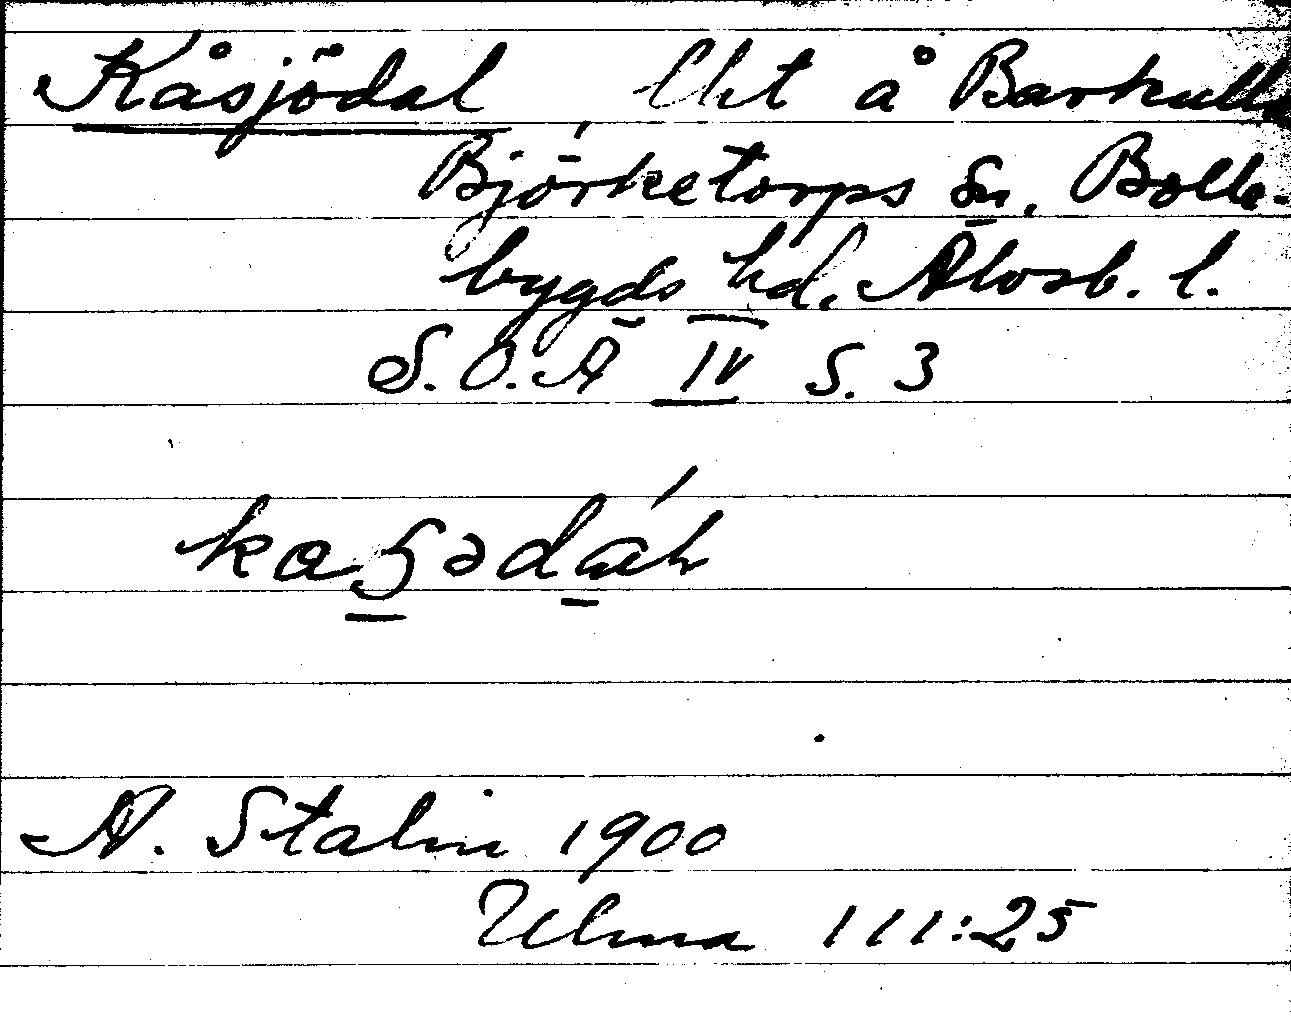 Kåsjödal lht å Barkulla
Björketorps sn, Bolle-
bygds hd, Älvsb. l.
S.O.Ä IV S. 3
A. Stalin 1900
Ulma 111:25